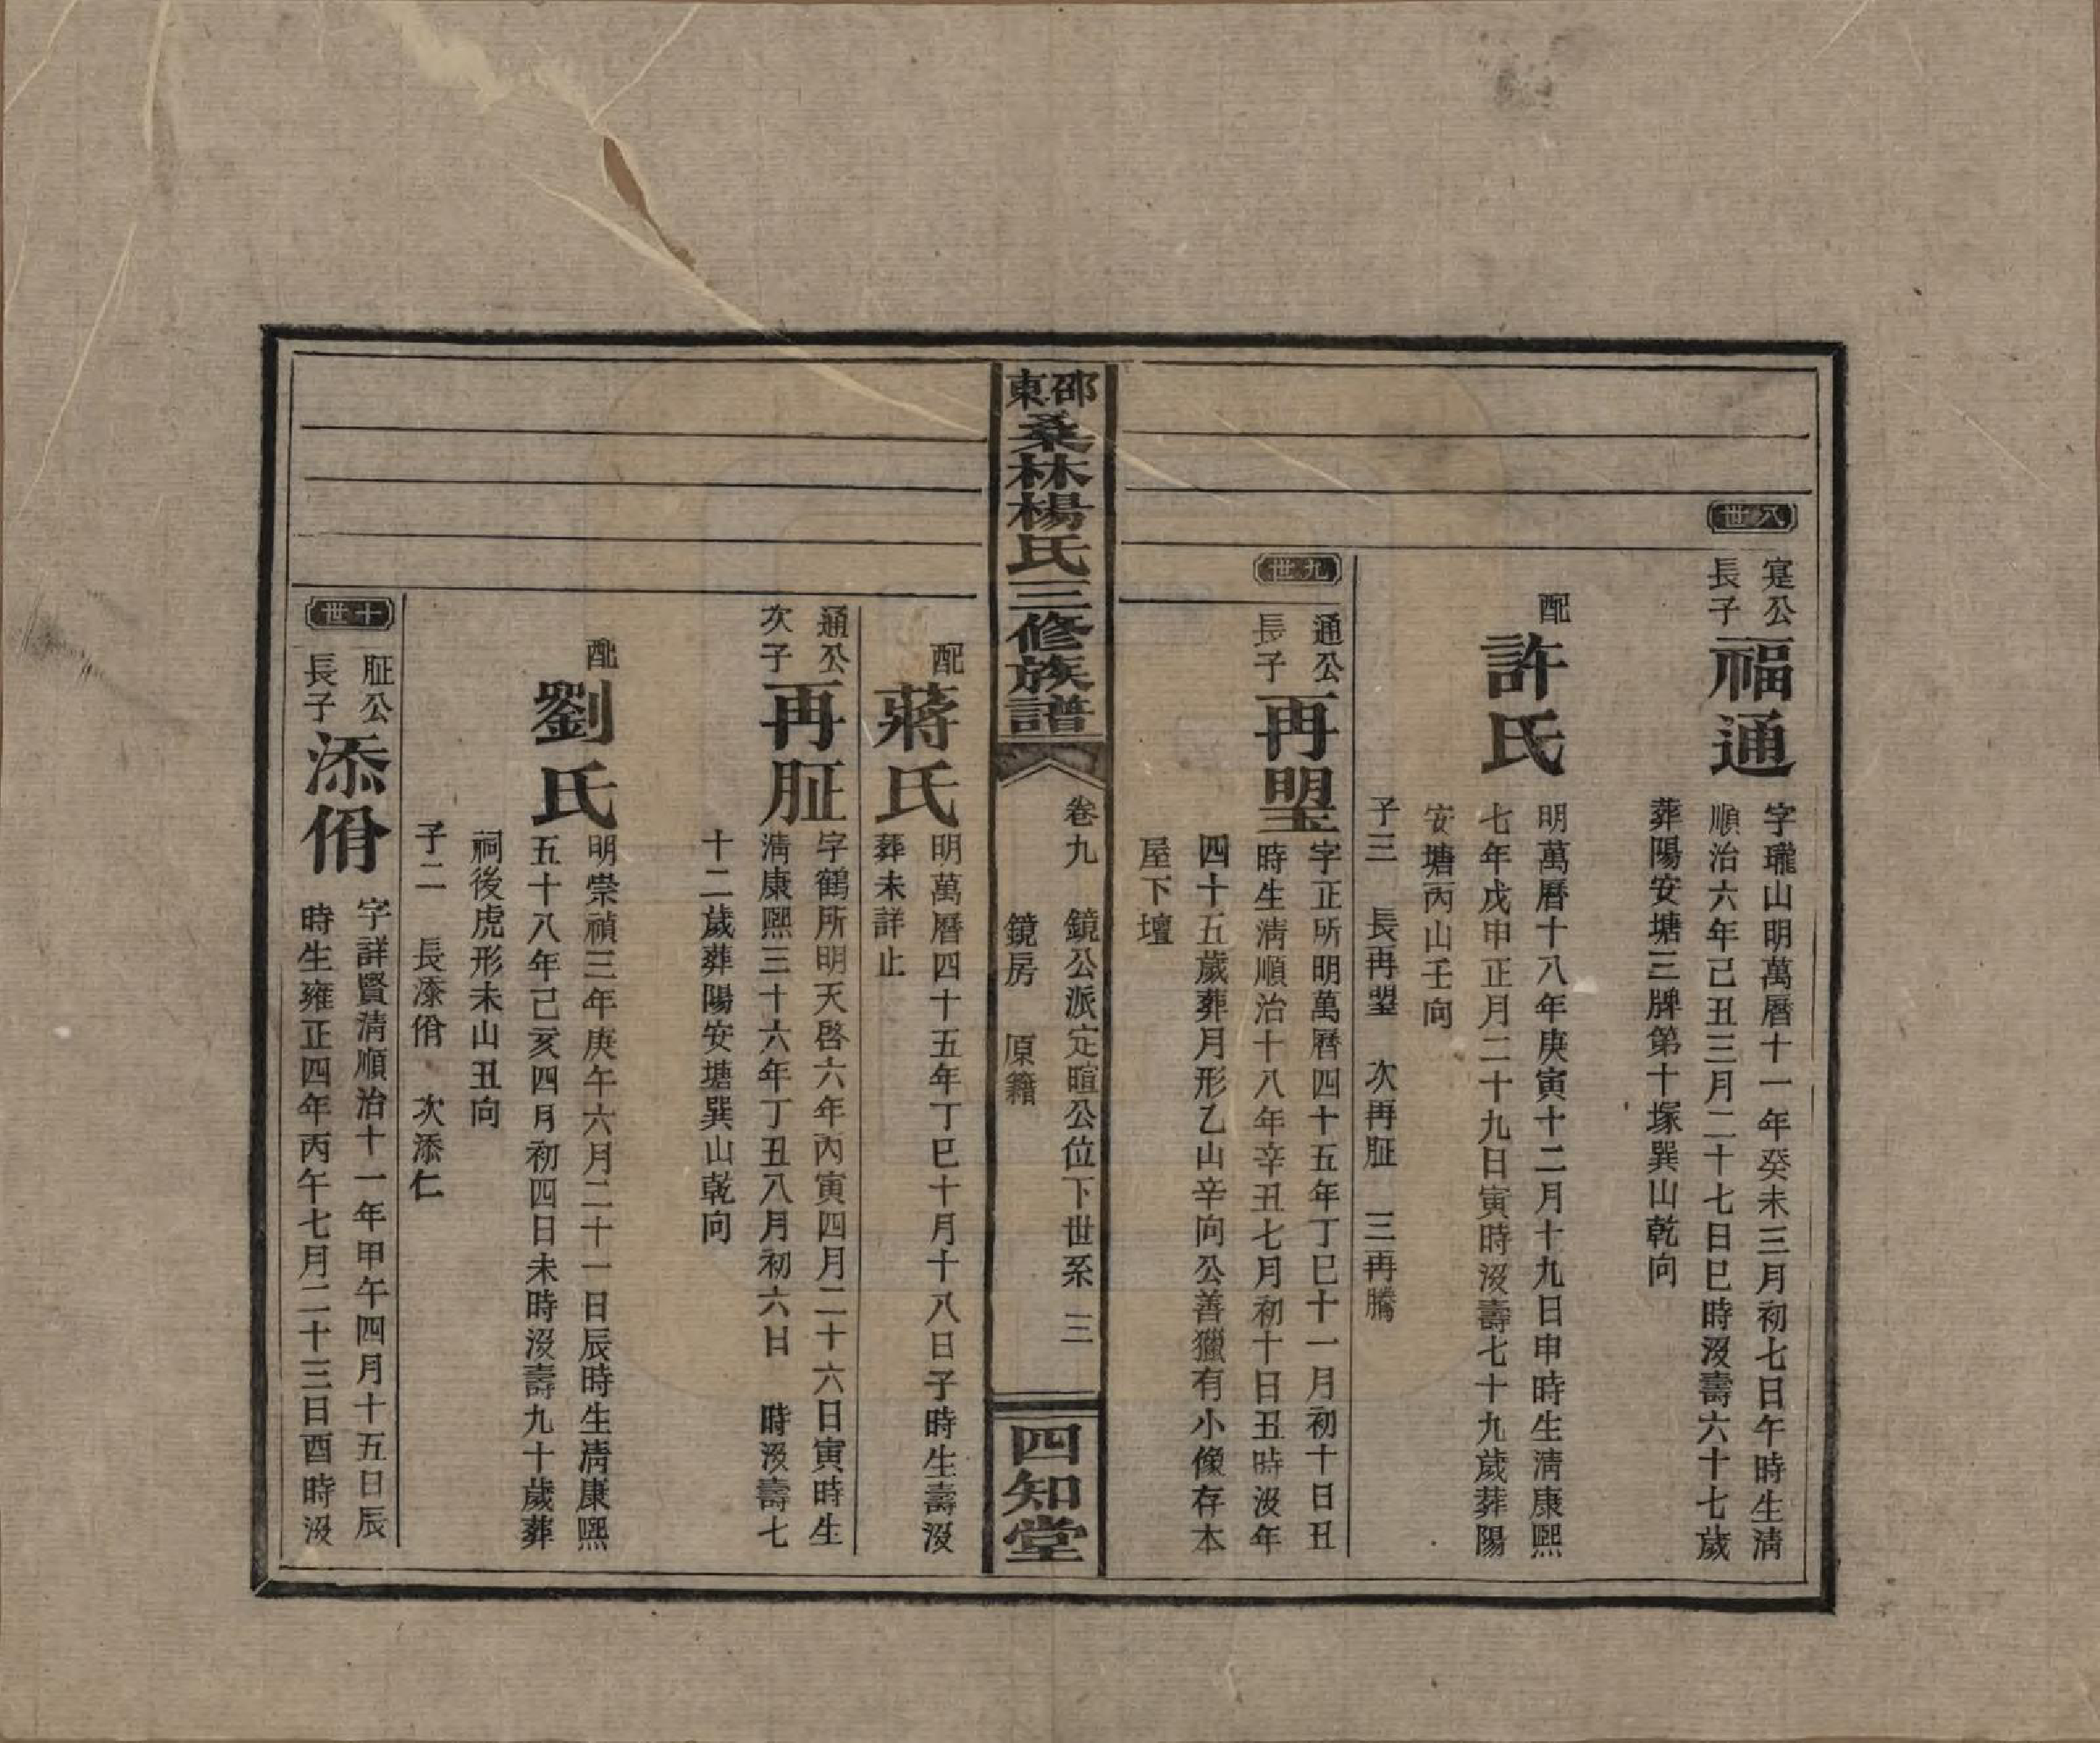 八世
寔公長子
福通
字瓏山明萬曆十一年癸未三月初七日午時生清
順治六年己丑三月二十七日巳時沒壽六十七歲
葬陽安塘三牌第十塚巽山乾向
配
許氏
明萬曆十八年庚寅十二月十九日申時生清康熙
七年戊申正月二十九日寅時沒壽七十九歲葬陽
安塘丙山壬向
子三 長再琞 次再𦙾 三再騰
九世
通公長子
再琞
字正所明萬曆四十五年丁巳十一月初十日丑
時生清順治十八年辛丑七月初十日丑時沒年
四十五歲葬月形乙山辛向公善獵有小像存本
屋下壇
邵東桑林楊氏三修族譜
卷九 鏡公派定暄公位下世系 三
鏡房 原籍
四知堂
配
蔣氏
明萬曆四十五年丁巳十月十八日子時生壽沒
葬未詳止
通公次子
再𦙾
字鶴所明天啓六年丙寅四月二十六日寅時生
清康熙三十六年丁丑八月初六日 時沒壽七
十二歲葬陽安塘巽山乾向
配
劉氏
明崇禎三年庚午六月二十一日辰時生清康熙
五十八年己亥四月初四日未時沒壽九十歲葬
祠後虎形未山丑向
子二 長添佾 次添仁
十世
𦙾公長子
添佾
字詳賢清順治十一年甲午四月十五日辰
時生雍正四年丙午七月二十三日酉時沒